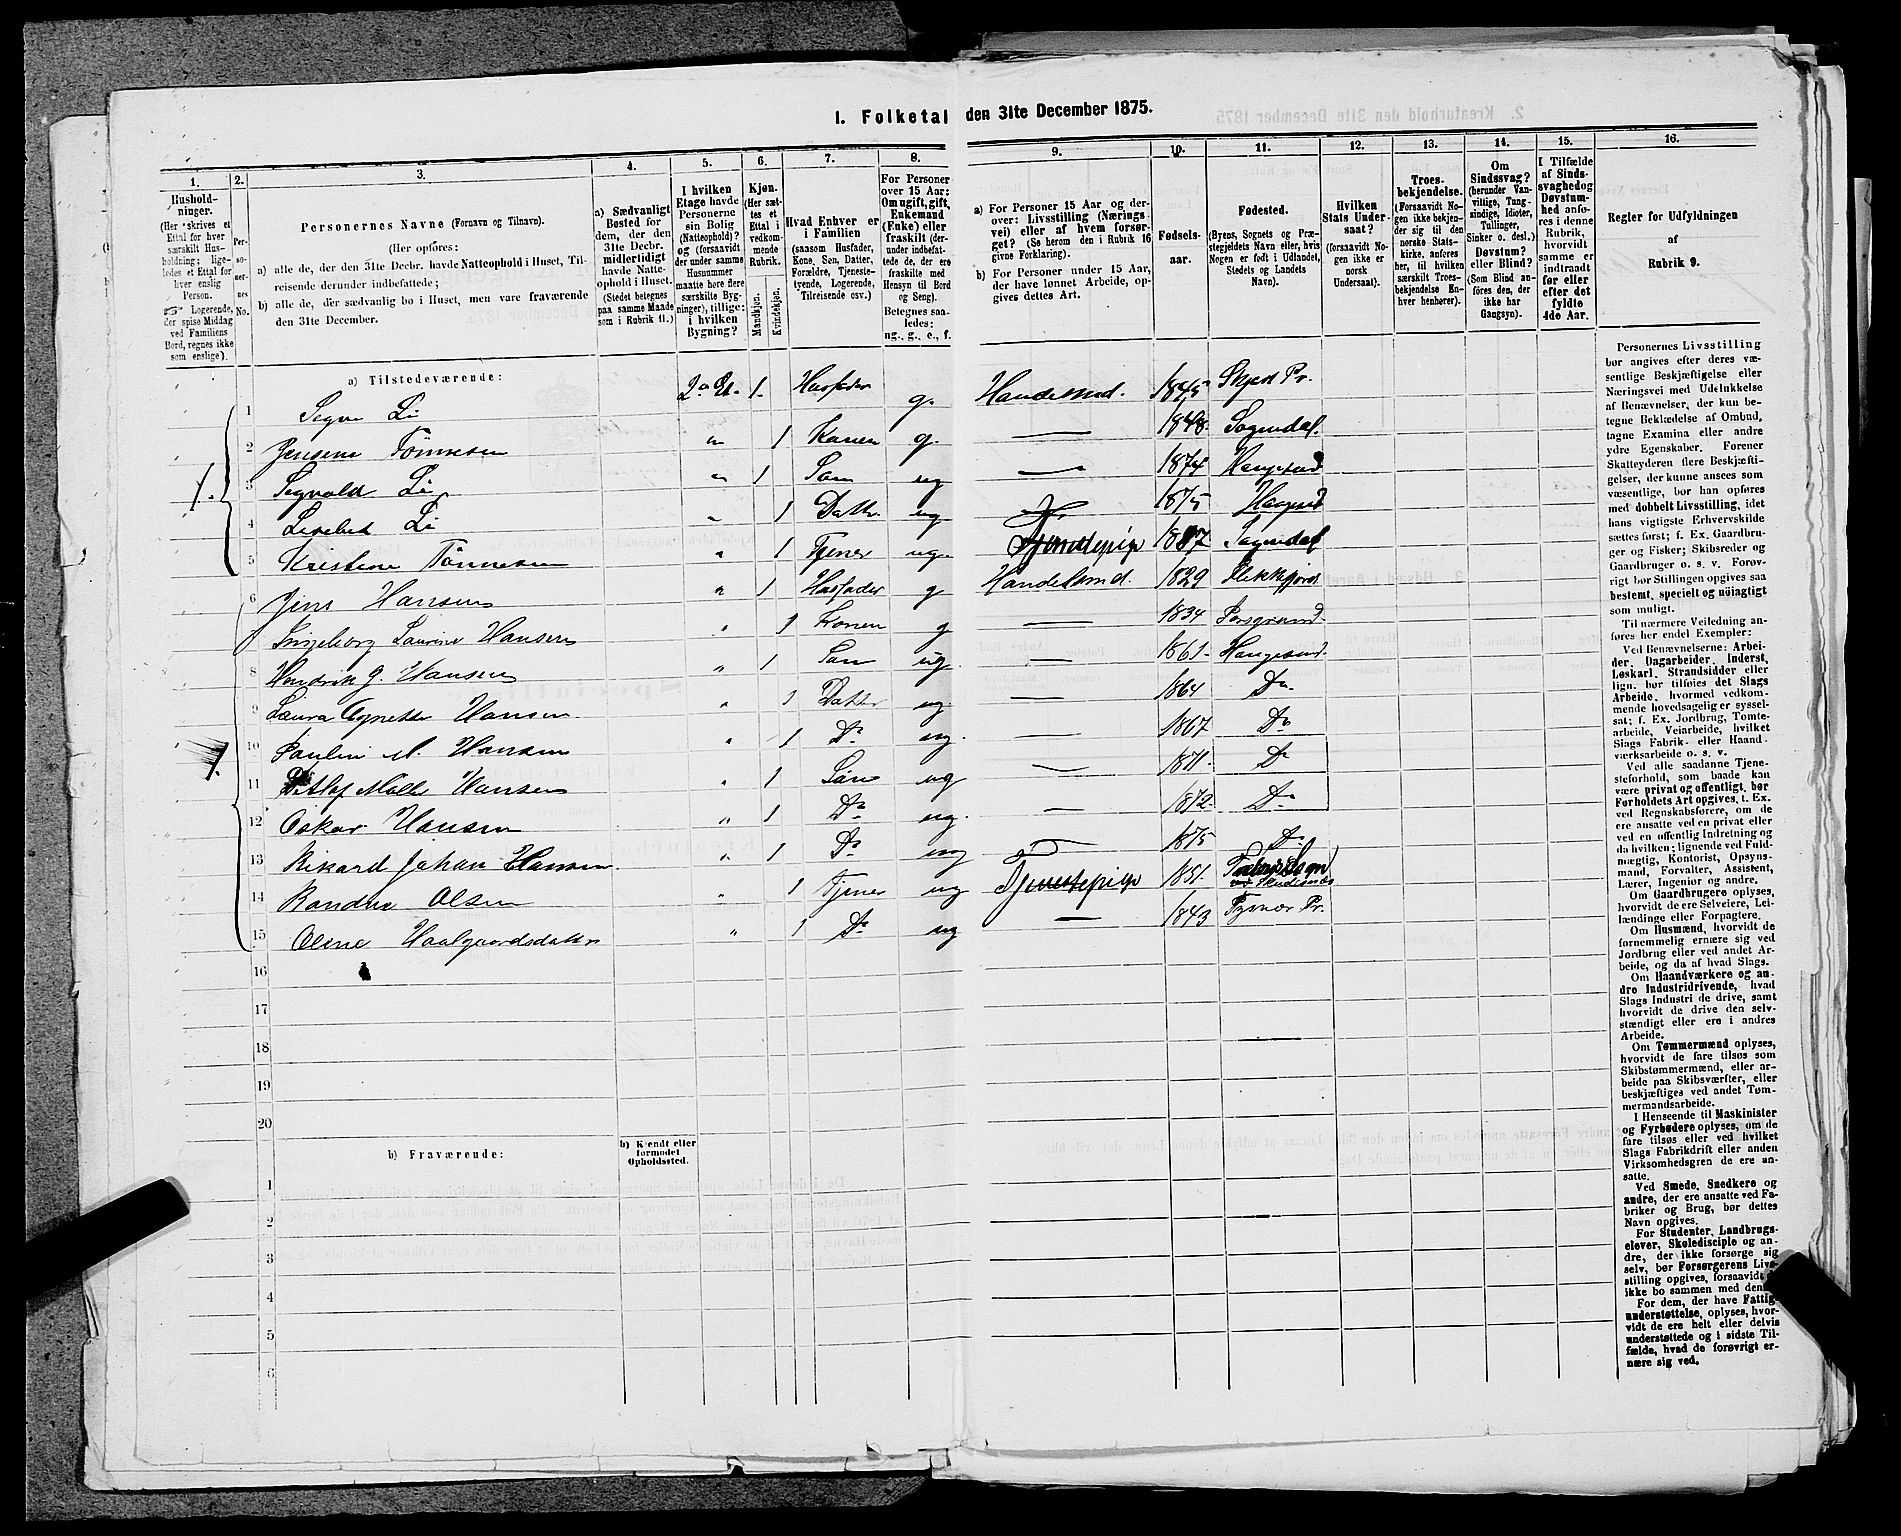 I. Folketal den 31te December 1875.
1. 2. 3. 4. 5. 6. 7. 8. 9. 10. 11. 12. 13. 14. 15. 16.
Husholdninger.
(Her skrives et
Ettal for hver
særskilt Hus-
holdning; lige-
ledes et Ettal for
hver enslig
Person.
☞ Logerende,
der spise Middag
ved Familiens
Bord, regnes ikke
som enslige).
Personernes No.
Personernes Navne (Fornavn og Tilnavn).
(Her opføres:
a) alle de, der den 31te Decbr. havde Natteophold i Huset, Til-
reisende derunder indbefattede;
b) alle de, der sædvanlig bo i Huset, men vare fraværende
den 31te December.
a) Sædvanligt
Bosted for
dem, der den
31te Decbr.
midlertidigt
havde Natte-
ophold i Huset.
(Stedet betegnes
paa samme Maade
som i Rubrik 11.)
I hvilken
Etage havde
Personerne
sin Bolig
(Natteophold)?
og (forsaavidt
der under samme
Husnummer
maatte høre flere
særskilte Byg-
ninger), tillige:
i hvilken
Bygning?
Kjøn.
(Her sæt-
tes et
Ettal i
vedkom-
mende
Rubrik.
Mandkjøn.
Kvindekjøn.
Hvad Enhver er
i Familien
(saasom Husfader,
Kone, Søn, Datter,
Forældre, Tjeneste-
tyende, Logerende,
Tilreisende osv.)
For Personer
over 15 Aar:
Om ugift, gift,
Enkemand
(Enke) eller
fraskilt (der-
under indbefat-
tede de, der ere
fraskilte med
Hensyn til Bord
og Seng).
Betegnes saa-
ledes:
ug., g., e., f.
a) For Personer 15 Aar og der-
over: Livsstilling (Nærings-
vei) eller af hvem forsør-
get? (Se herom den i Rubrik 16
givne Forklaring).
b) For Personer under 15 Aar,
der have lønnet Arbeide, op-
gives dettes Art.
Fødsels-
aar.
Fødested.
(Byens, Sognets og Præ-
stegjeldets Navn eller, hvis
Nogen er født i Udlandet,
Stedets og Landets
Navn).
Hvilken
Stats Under-
saat?
(forsaavidt No-
gen ikke er
norsk
Undersaat).
Troes-
bekjendelse.
(Forsaavidt No-
gen ikke bekjen-
der sig til den
norske Stats-
kirke, anføres
her, til hvilken
særskilt Troes-
bekjendelse En-
hver henhører).
Om
Sindssvag?
(herunder Van-
vittige, Tung-
sindige, Idioter,
Tullinger,
Sinker o. desl.)
Døvstum?
eller Blind?
(Som Blind an-
føres den, der
ikke har
Gangsyn).
I Tilfælde
af Sinds-
svaghed og
Døvstum-
hed anfø-
res i denne
Rubrik,
hvorvidt
samme er
indtraadt
før eller
efter det
fyldte
4de Aar.
Regler for Udfyldningen
af
Rubrik 9.
a) Tilstedeværende:
1 Sigve Li 2. Et. 1. Husfader g. Handelsmd. 1845 Skjed Pr.
2 Jensene Tönnesen " 1 Konen g. — 1848 Sogendal.
3 Sigvald Li " 1 Søn ug — 1874 Haugesund
4 Lisebet Li " 1 Datter ug 1875 Haugesund
5 Kristine Tønnesen " 1 Tjener ug. Tjenestepige Sogendal
6 Jens Hansen " 1 Husfader g Handelsmd. 1829 Flekkefjord
Ingeborg Laurine Hansen " 1 Konen g — 1834 Porsgrund
8 Hendrik G. Hansen " 1 Søn ug — 1861 Haugesund.
9 Laura Agnette Hansen " 1 Datter ug. — 1864 Do
10 Pauline M. Hansen " 1 Do ug — 1867 Do
11 Møller Hansen " 1 Søn ug — 1871 Do
12 Oskar Hansen " 1 Do ug. — 1872 Do
13 Rikard Johan Hansen " 1 Do ug — 1875 Do
14 Randine Olsen " 1 Tjener ug Tjenestepige 1851 Skudesnæs
15 Oline Haalgaardsdatter " 1 Do ug — 1843 Tysvær Pr.
16
17
18
19
20
b) Fraværende:
b) Kjendt eller
formodet
Opholdssted.
1
2
3
4
5
6
Personernes Livsstilling
bør angives efter deres væ-
sentlige Beskjæftigelse eller
Næringsvei med Udelukkelse
af Benævnelser, der kun be-
tegne Beklædelse af Ombud,
tagne Examina eller andre
ydre Egenskaber. Forener
Skatteyderen flere Beskjæfti-
gelser, der kunne ansees som
væsentlige, bør han opføres
med dobbelt Livsstilling, idet
hans vigtigste Erhvervskilde
sættes først; f. Ex. Gaardbru-
ger og Fisker; Skibsreder og
Gaardbruger o. s. v. Forøv-
rigt bør Stillingen opgives saa
bestemt, specielt og nøiagtigt
som muligt.
Til nærmere Veiledning an-
føres her endel Exempler:
Ved Benævnelserne: Arbei-
der, Dagarbeider, Inderst,
Løskarl, Strandsidder eller
lign. bør tilføies det Slags
Arbeide, hvormed vedkom-
mende hovedsagelig er syssel-
sat; f. Ex. Jordbrug, Tomte-
arbeide, Veiarbeide, hvilket
Slags Fabrik- eller Haand-
værksarbeide o. s. v.
Ved alle saadanne Tjene-
steforhold, som baade kan
være privat og offentligt, bør
Forholdets Art opgives, t. Ex.
ved Regnskabsførere, om de
ere ansatte ved en privat eller
ved en offentlig Indretning og
da hvilken; lignende ved Fuld-
mægtig, Kontorist, Opsyns-
mand, Forvalter, Assistent,
Lærer, Ingeniør og andre.
Om Gaardbrugere oplyses,
hvorvidt de ere Selveiere, Lei-
lændinge eller Forpagtere.
Om Husmænd, hvorvidt de
fornemmelig ernære sig ved
Jordbrug eller ved andet Ar-
beide, og da af hvad Slags.
Om Haandværkere og an-
dre Industridrivende, hvad
Slags Industri de drive, samt
hvorvidt de drive den selv-
stændigt eller ere i andres
Arbeide.
Om Tømmermænd oplyses,
hvorvidt de fare tilsøs som
Skibstømmermænd, eller ar-
beide paa Skibsværfter, eller
beskjæftiges ved andet Tøm-
mermandsarbeide.
I Henseende til Maskinister
og Fyrbødere oplyses, om de
fare tilsøs eller ved hvilket
Slags Fabrikdrift eller anden
Virksomhedsgren de ere an-
satte.
Ved Smede, Snedkere og
andre, der ere ansatte ved Fa-
briker og Brug, bør dettes
Navn opgives.
For Studenter, Landbrugs-
elever, Skoledisciple og an-
dre, der ikke forsørge sig
selv, bør Forsørgerens Livs-
stilling opgives, forsaavidt
ikke bo sammen med den
For dem, der have Fattig-
understøttelse, oplyses, hvor-
vidt de ere helt eller delvis
understøttede og i sidste Til-
fælde, hvad de forøvrigt er-
nære sig ved.